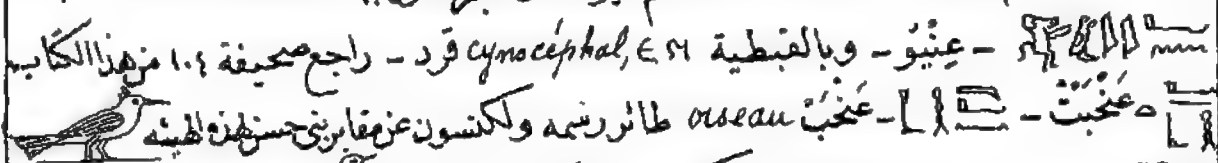 - عِنْيُو - وبالقبطية cynocéphal, ЄΝ قرد - راجع صحيفة ١٠٤ من هذا الكتاب
عَنْخَبَتْ - عَنْخَبْ oiseau طائر رسمه ولكنسون عن مقابر بنى حسن بهذه الهيئه